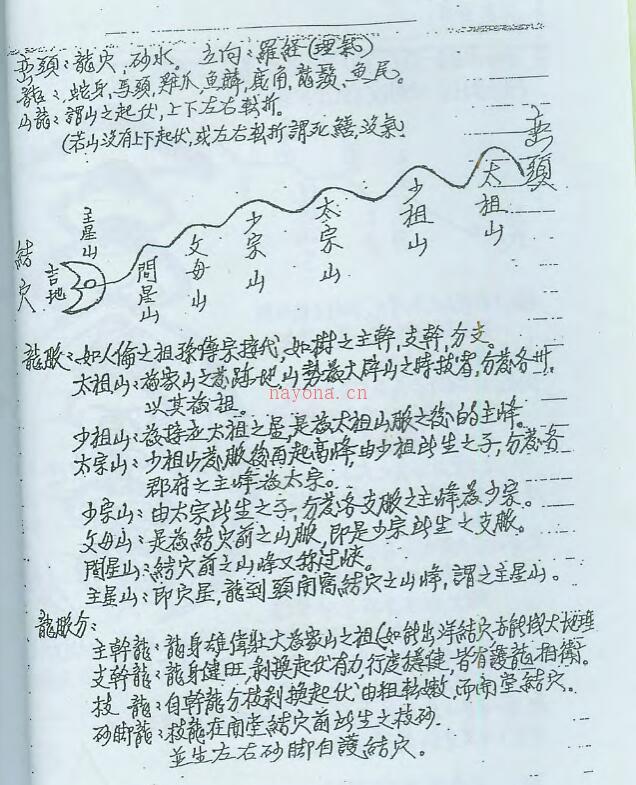 巒頭：龍穴，砂水。立向：羅經(理氣)
龍：蛇身，馬頭，雞爪，魚鱗，鹿角，龍鬚，魚尾。
山龍：謂山之起伏，上下左右転折。
(若山沒有上下起伏，或左右転折謂死鱔，沒氣)
巒頭
太祖山
少祖山
太宗山
少宗山
父母山
間星山
主星山
吉地
結穴
龍脈：如人倫之祖孫傳宗接代，如樹之主幹，支幹，分支。
太祖山：為眾山之發跡地，山勢最大群山之特技者，分發各州。
以其為祖。
少祖山：為接近太祖之星，是為太祖山脈之後的主峰。
太宗山：少祖山發脈後再起高峰，由少祖所生之子，分發各
郡府之主峰為太宗。
少宗山：由太宗所生之子，分發各支脈之主峰為少宗。
父母山：是為結穴前之山脈，即是少宗所生之支脈。
間星山：結穴前之山峰又称过峽。
主星山：即穴星，龍到頭開窩結穴之山峰，謂之主星山。
龍脈分：
主幹龍：龍身雄偉壯大為眾山之祖(如能出洋結穴方能成大地理
支幹龍：龍身健旺，剝換起伏有力，行度穩健，皆有護龍相衛。
技龍：自幹龍分技剝換起伏由粗転嫩，而開堂結穴。
砂脚龍：技龍在開堂結穴前所生之技砂。
並生左右砂脚自護結穴。
nayona.cn